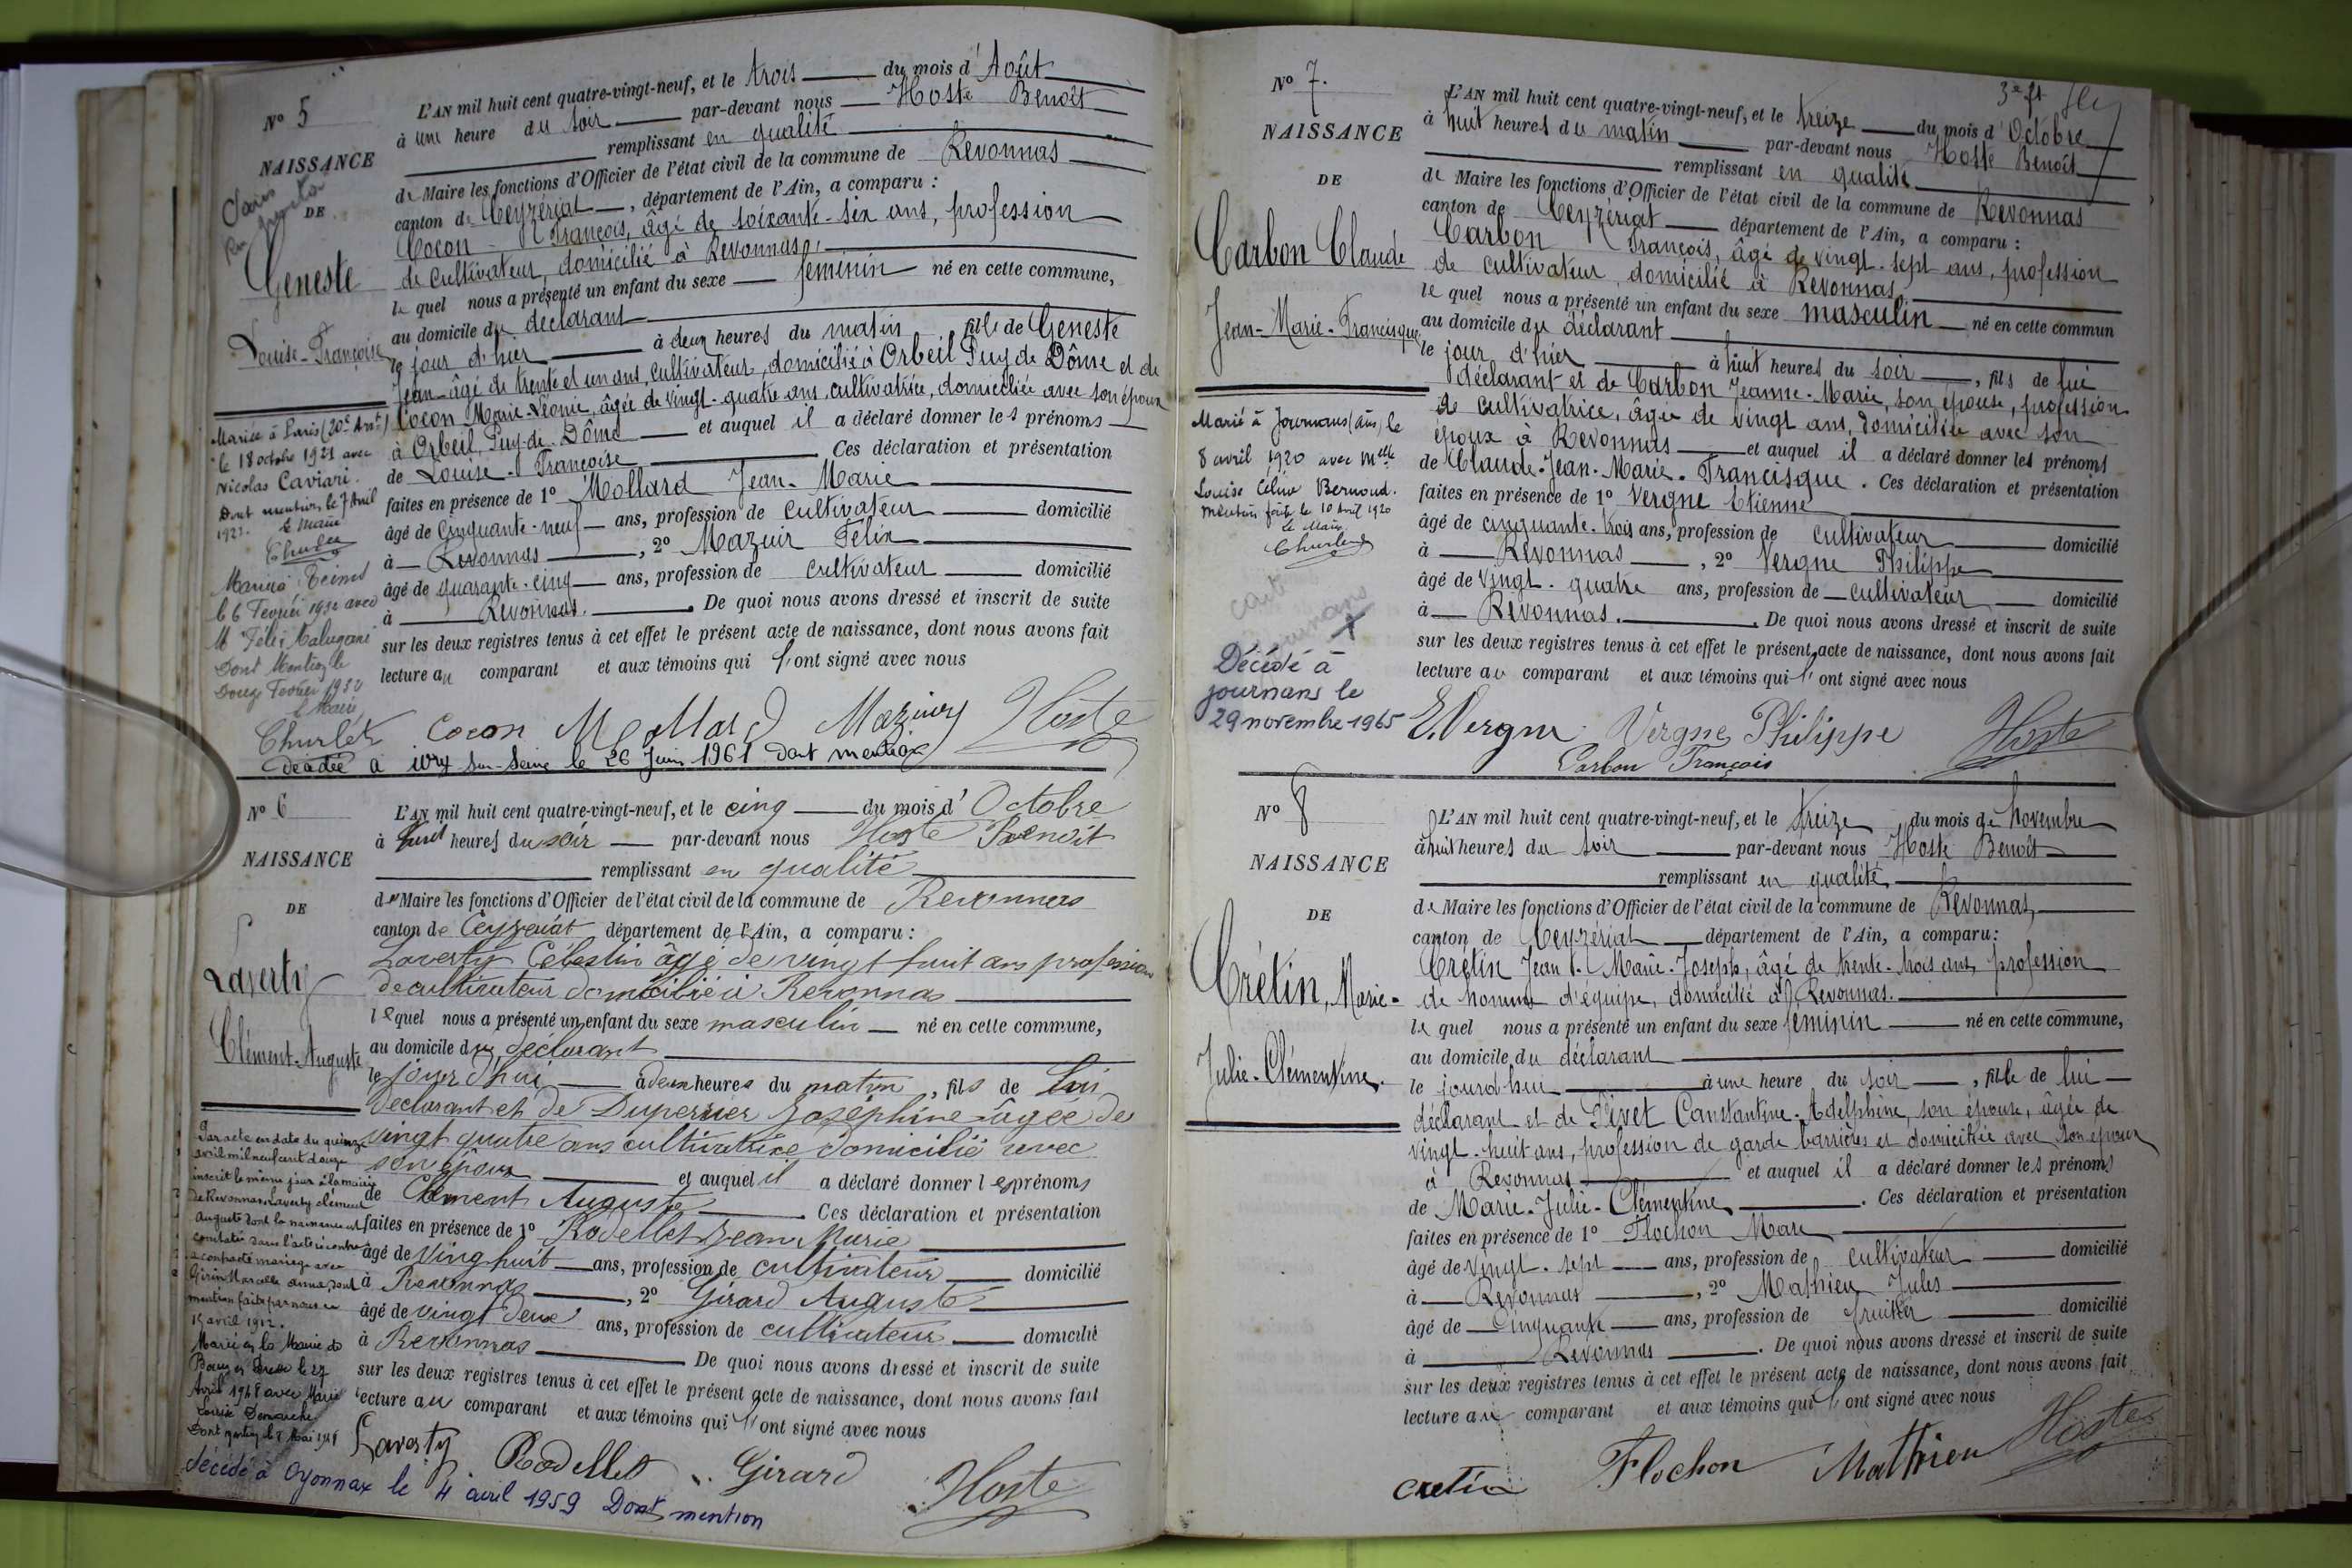 Nº 5
NAISSANCE
DE
Geneste
Louise-Françoise
Mariée à Paris (20e Arrt)
le 18 octobre 1921 avec
Nicolas Caviari.
Dont mention, le 7 Avril
192
le Maire
Churlet
le 6 Février 1932 avec
M Felix Malugani
Dont Mention le
Douze Fevrier 1932
le Maire
L'AN mil huit cent quatre-vingt-neuf, et le trois du mois d'Août
à une heure du soir par-devant nous Hoste Benoît
remplissant en qualité
de Maire les fonctions d'Officier de l'état civil de la commune de Revonnas
canton de Ceyzériat, département de l'Ain, a comparu :
Cocon François, âgé de soixante-six ans, profession
de cultivateur, domicilié à Revonnas,
le quel nous a présenté un enfant du sexe féminin né en cette commune,
au domicile du déclarant
le jour d'hier à deux heures du matin fille de Geneste
Jean âgé de trente et un ans, cultivateur, domicilié à Orbeil Puy de Dôme et de
Cocon Marie-Léonie, âgée de vingt-quatre ans, cultivatrice, domiciliée avec son époux
à Orbeil, Puy-de-Dôme et auquel il a déclaré donner les prénoms
de Louise-Françoise Ces déclaration et présentation
faites en présence de 1º Mollard Jean-Marie
âgé de cinquante-neuf ans, profession de cultivateur domicilié
à Revonnas, 2º Mazuir Félix
âgé de quarante-cinq ans, profession de cultivateur domicilié
à Revonnas. De quoi nous avons dressé et inscrit de suite
sur les deux registres tenus à cet effet le présent acte de naissance, dont nous avons fait
lecture au comparant et aux témoins qui l'ont signé avec nous
Churlet Cocon Mollard Mazuir Hoste
décédée à ivry sur Seine le 26 Juin 1961 Dont mention
Nº 6
NAISSANCE
DE
Laverty
Clément-Auguste
Par acte en date du quinze
avril mil neuf cent douze
inscrit le même jour à la mairie
de Revonnas Laverty Clément
Auguste dont la naissance est
constatée dans l'acte ci contre
a contracté mariage avec
Girin Marcelle Anna, dont
mention faite par nous ce
15 avril 1912.
Marié en la Mairie de
Bourg en Bresse le 27
Avril 1948 avec Marie
Louise
Dont mention le 8 Mai 1948
L'AN mil huit cent quatre-vingt-neuf, et le cinq du mois d'Octobre
à huit heures du soir par-devant nous Hoste Benoit
remplissant en qualité
de Maire les fonctions d'Officier de l'état civil de la commune de Revonnas
canton de Ceyzeriat département de l'Ain, a comparu :
Laverty Célestin âgé de vingt huit ans profession
de cultivateur domicilié à Revonnas
lequel nous a présenté un enfant du sexe masculin né en cette commune,
au domicile du déclarant
le jour d'hui à deux heures du matin, fils de Lui
declarant et de Duperrier Joséphine âgée de
vingt quatre ans cultivatrice domicilié avec
son époux et auquel il a déclaré donner les prénoms
de Clement Auguste Ces déclaration et présentation
faites en présence de 1º Rodellet Jean Marie
âgé de ving huit ans, profession de cultivateur domicilié
à Revonnas, 2º Girard Auguste
âgé de vingt deux ans, profession de cultivateur domicilié
à Revonnas De quoi nous avons dressé et inscrit de suite
sur les deux registres tenus à cet effet le présent acte de naissance, dont nous avons fait
lecture au comparant et aux témoins qui l'ont signé avec nous
Laverty Rodellet Girard Hoste
décédé à Oyonnax le 4 avril 1959 Dont mention
3e ft
Nº 7.
NAISSANCE
DE
Carbon Claude
Jean-Marie-Francisque
Marié à Journans (Ain) le
8 avril 1920 avec Melle
Louise Céline Bernoud.
Mention faite le 10 Avril 1920
Le Maire
Churlet
Journans
Décédé à
journans le
29 novembre 1965
L'AN mil huit cent quatre-vingt-neuf, et le treize du mois d'Octobre
à huit heures du matin par-devant nous Hoste Benoît
remplissant en qualité
de Maire les fonctions d'Officier de l'état civil de la commune de Revonnas
canton de Ceyzériat département de l'Ain, a comparu :
Carbon François, âgé de vingt-sept ans, profession
de cultivateur, domicilié à Revonnas,
le quel nous a présenté un enfant du sexe masculin né en cette commun
au domicile du déclarant
le jour d'hier à huit heures du soir, fils de lui
déclarant et de Carbon Jeanne-Marie, son épouse, profession
de cultivatrice, âgée de vingt ans, domiciliée avec son
époux à Revonnas et auquel il a déclaré donner les prénoms
de Claude-Jean-Marie-Francisque. Ces déclaration et présentation
faites en présence de 1º Vergne Etienne
âgé de cinquante-trois ans, profession de cultivateur domicilié
à Revonnas, 2º Vergne Philippe
âgé de vingt-quatre ans, profession de cultivateur domicilié
à Revonnas. De quoi nous avons dressé et inscrit de suite
sur les deux registres tenus à cet effet le présent acte de naissance, dont nous avons fait
lecture au comparant et aux témoins qui l'ont signé avec nous
E. Vergne Vergne Philippe Hoste
Carbon François
Nº 8
NAISSANCE
DE
Crétin, Marie-
Julie-Clémentine.
L'AN mil huit cent quatre-vingt-neuf, et le treize du mois de Novembre
à huit heures du soir par-devant nous Hoste Benoît
remplissant en qualité
de Maire les fonctions d'Officier de l'état civil de la commune de Revonnas,
canton de Ceyzériat département de l'Ain, a comparu:
Crétin Jean-Marie-Joseph, âgé de trente-trois ans, profession
de homme d'équipe, domicilié à Revonnas.
le quel nous a présenté un enfant du sexe féminin né en cette commune,
au domicile du déclarant
le jourd'hui à une heure du soir, fille de lui
déclarant et de Pivet Constantine-Adelphine, son épouse, âgée de
vingt-huit ans, profession de garde barrières et domiciliée avec son époux
à Revonnas et auquel il a déclaré donner les prénoms
de Marie-Julie-Clémentine. Ces déclaration et présentation
faites en présence de 1º Flochon Marc
âgé de vingt-sept ans, profession de cultivateur domicilié
à Revonnas, 2º Mathieu Jules
âgé de Cinquante ans, profession de fruitier domicilié
à Revonnas. De quoi nous avons dressé et inscrit de suite
sur les deux registres tenus à cet effet le présent acte de naissance, dont nous avons fait
lecture au comparant et aux témoins qui l'ont signé avec nous
Cretin Flochon Mathieu Hoste